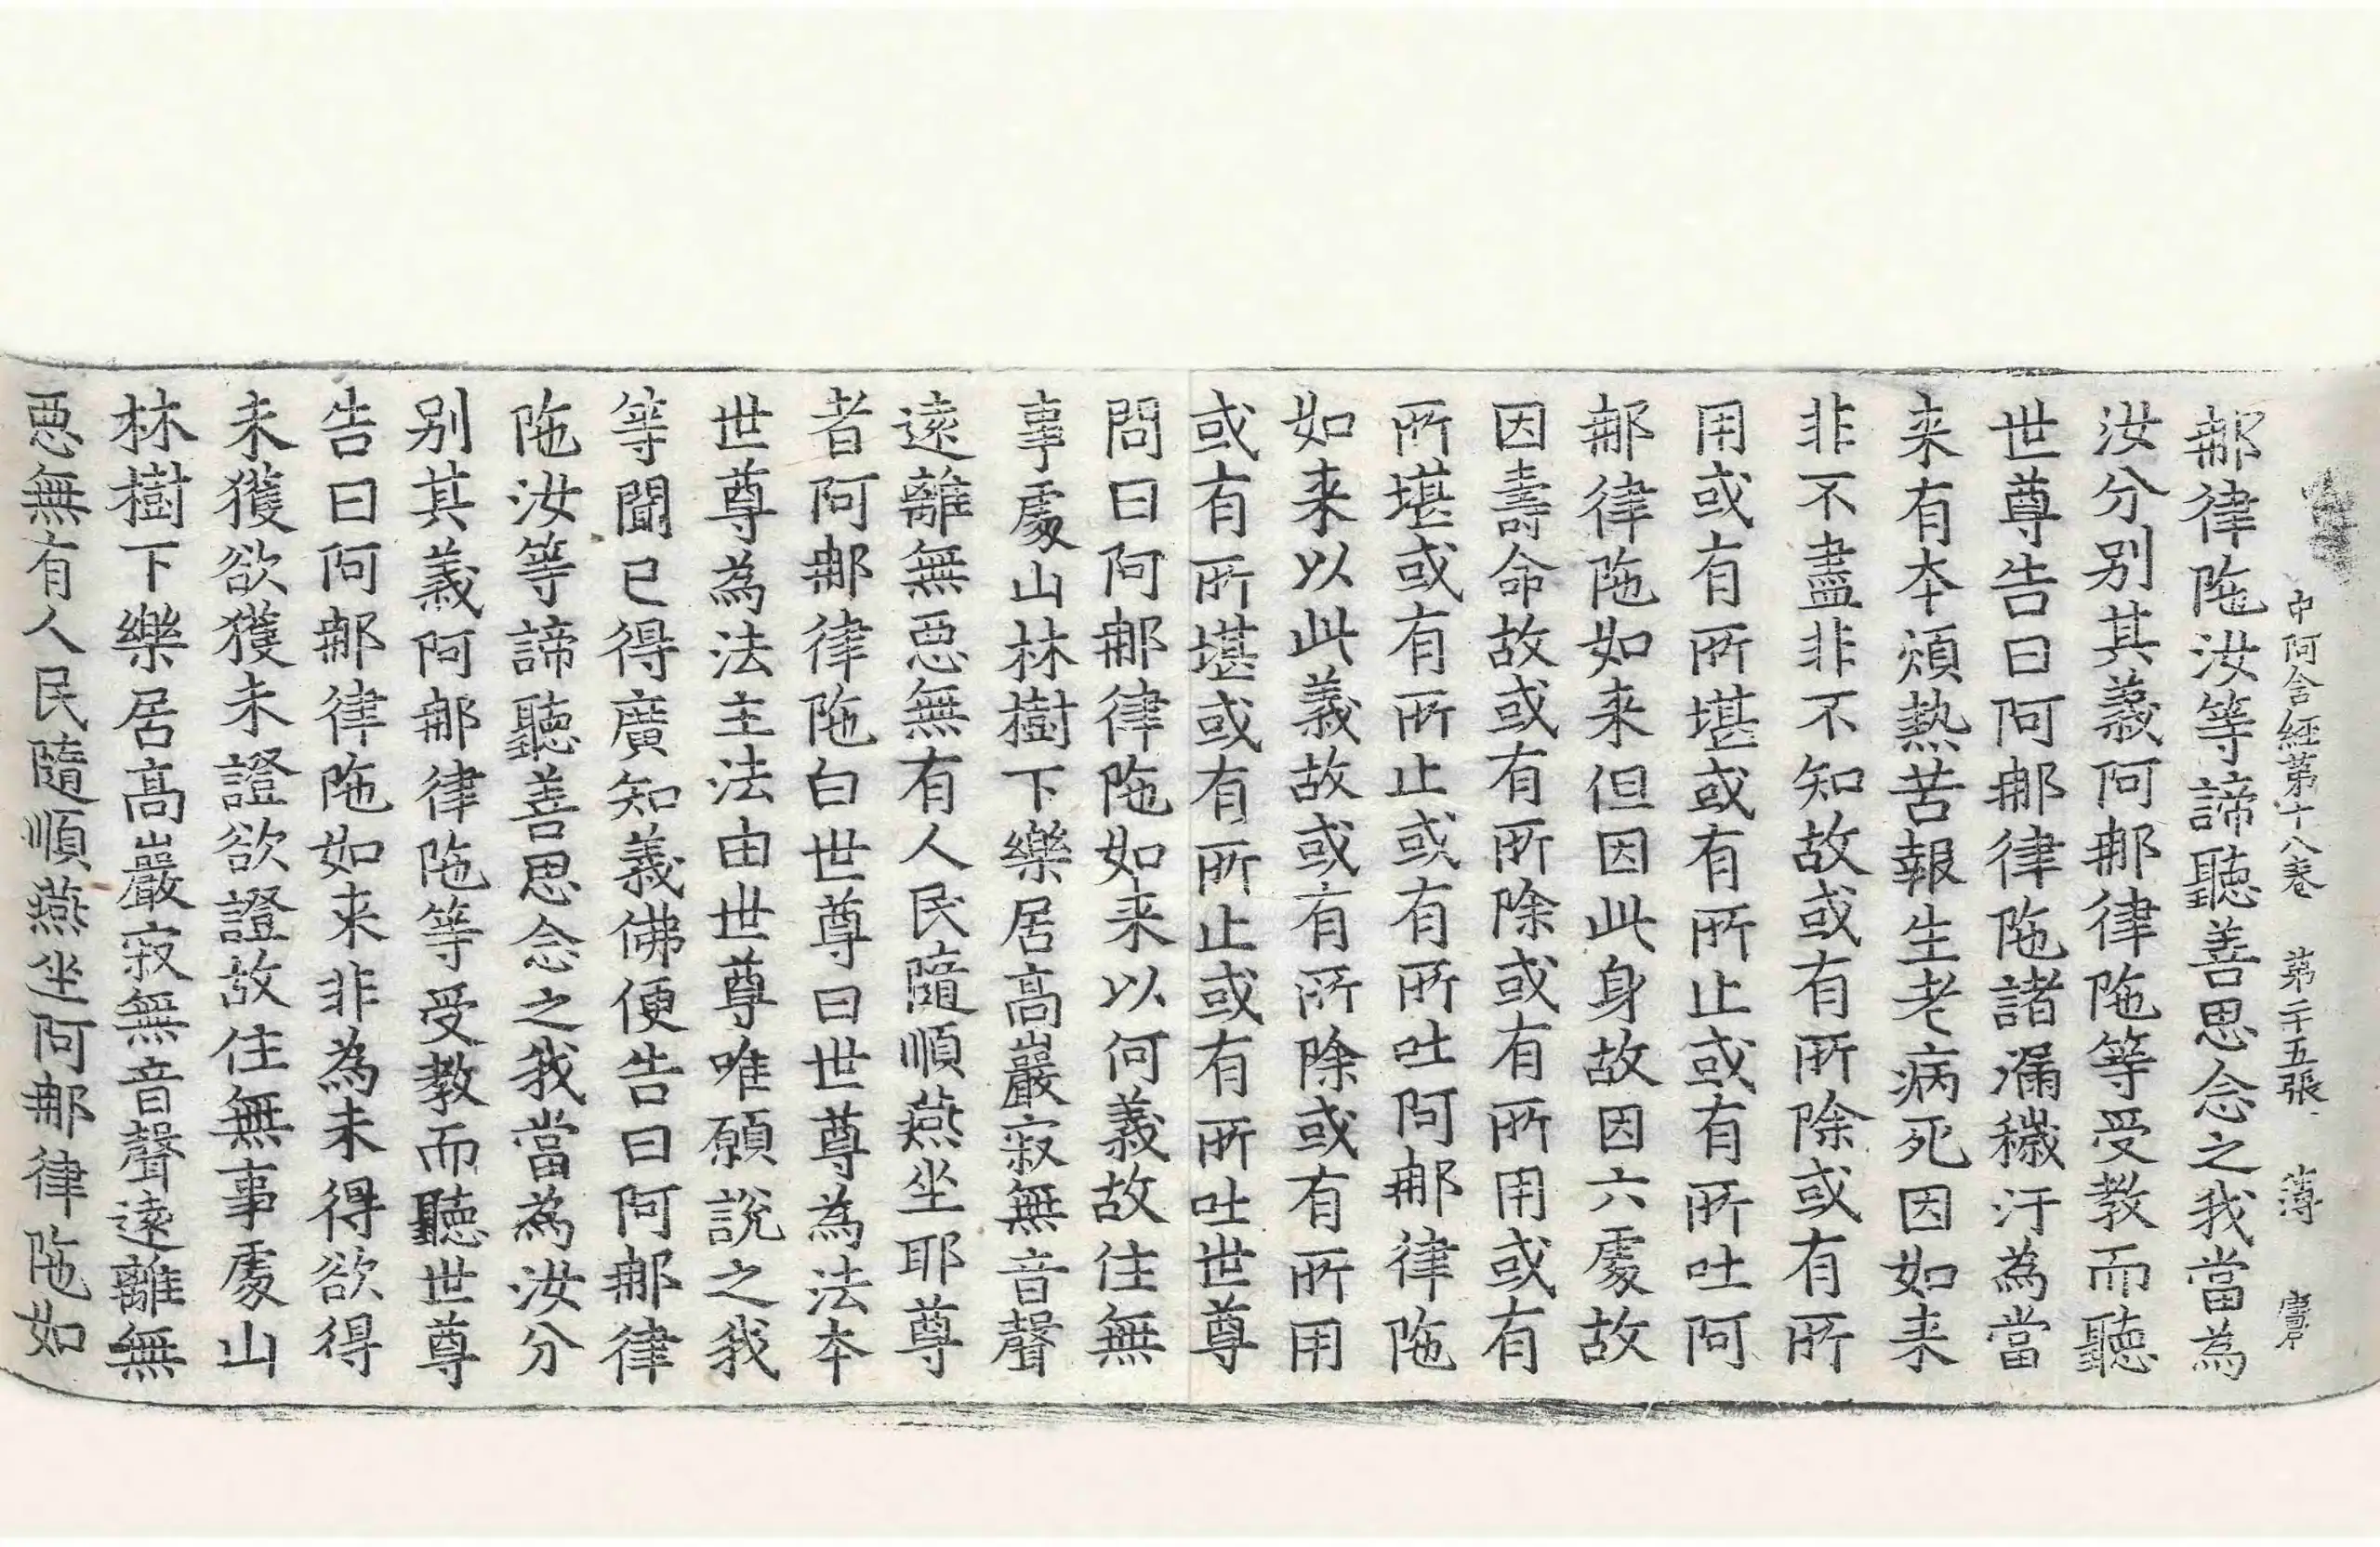 中阿含經第十八卷 第二十五張 薄
郍律陁汝等諦聽善思念之我當為
汝分别其義阿郍律陁等受教而聽
世尊告曰阿郍律陁諸漏穢汙為當
来有本煩熱苦報生老病死因如来
非不盡非不知故或有所除或有所
用或有所堪或有所止或有所吐阿
郍律陁如来但因此身故因六處故
因壽命故或有所除或有所用或有
所堪或有所止或有所吐阿郍律陁
如来以此義故或有所除或有所用
或有所堪或有所止或有所吐世尊
問曰阿郍律陁如来以何義故住無
事處山林樹下樂居高巖寂無音聲
遠離無惡無有人民隨順燕坐耶尊
者阿郍律陁白世尊曰世尊為法本
世尊為法主法由世尊唯願說之我
等聞已得廣知義佛便告曰阿郍律
陁汝等諦聽善思念之我當為汝分
别其義阿郍律陁等受教而聽世尊
告曰阿郍律陁如来非為未得欲得
未獲欲獲未證欲證故住無事處山
林樹下樂居高巖寂無音聲遠離無
惡無有人民隨順燕坐阿郍律陁如